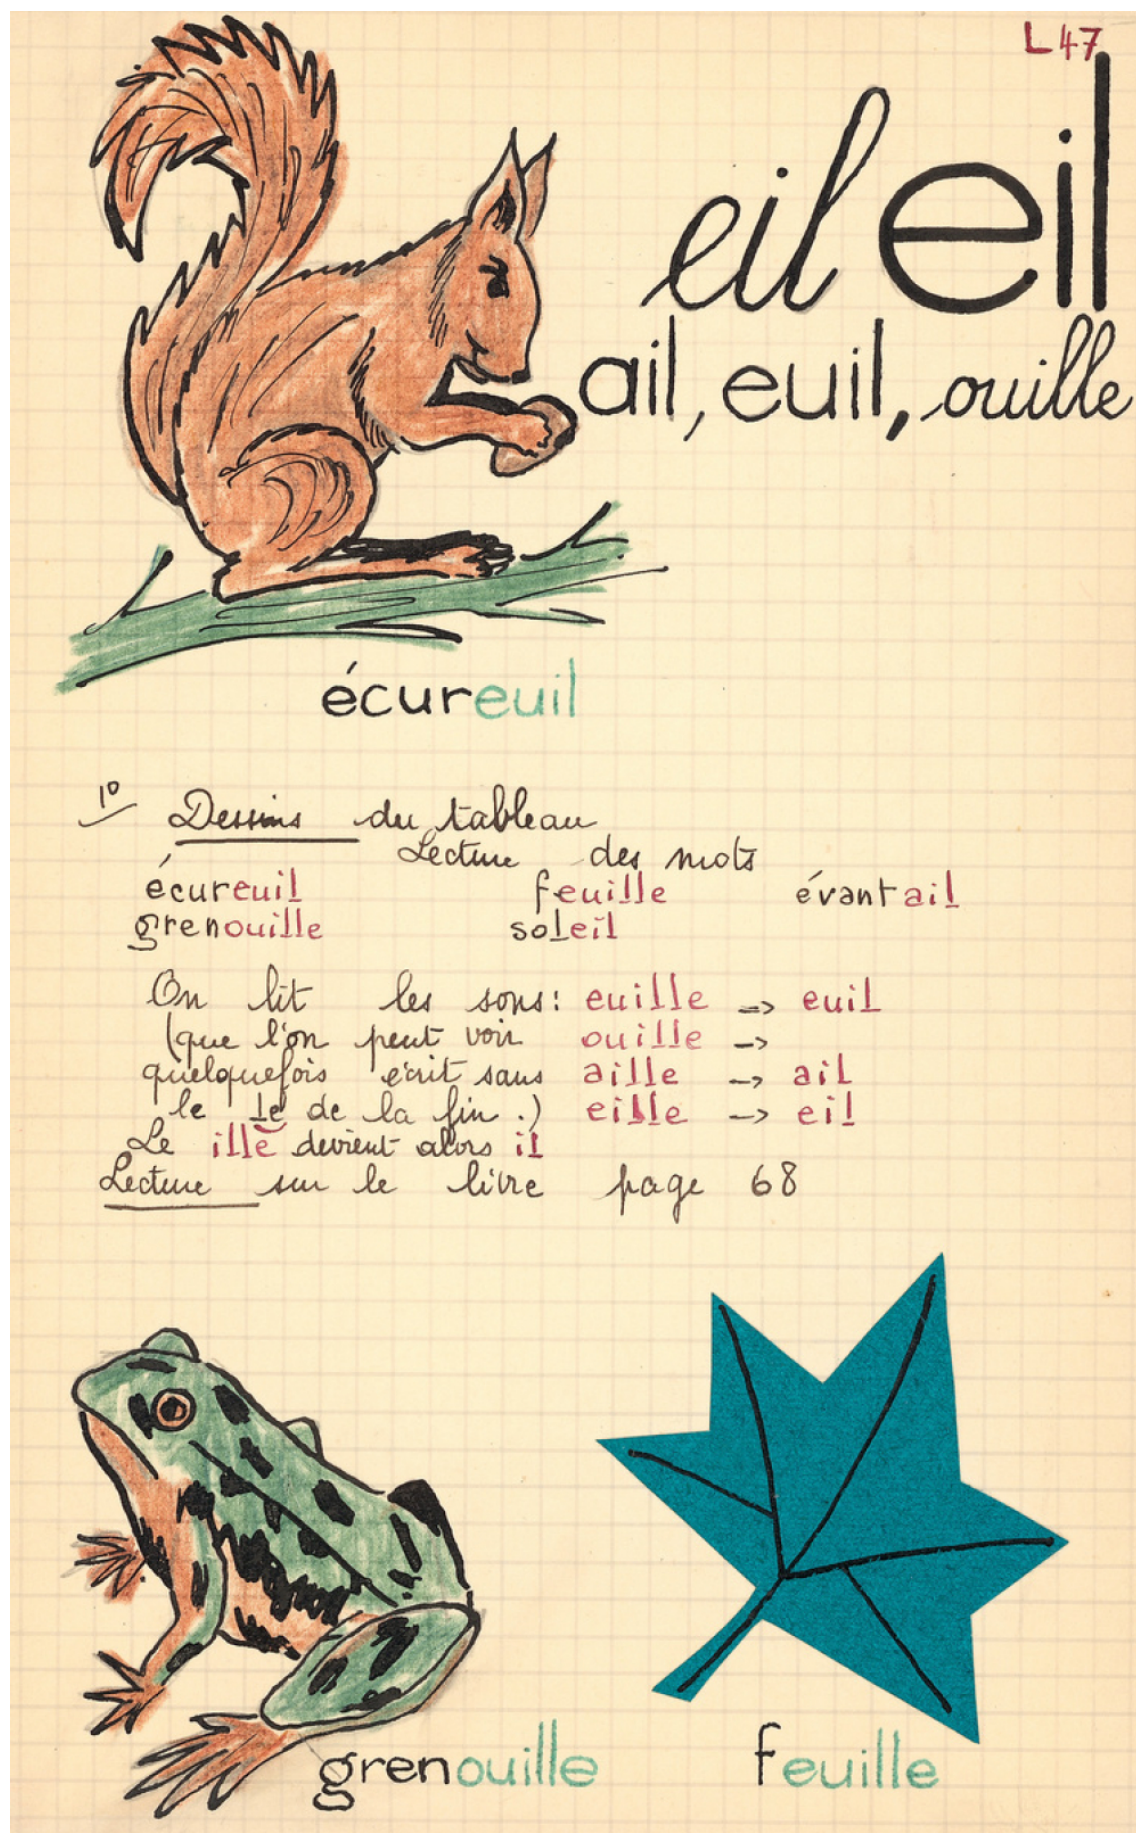 L 47
eil eil
ail, euil, ouille
écureuil
1º Dessins du tableau
Lecture des mots
écureuil feuille évantail
grenouille soleil
On lit les sons: euille -> euil
(que l'on peut voir ouille ->
quelquefois écrit sans aille -> ail
le le de la fin.) eille -> eil
Le ille devient alors il
Lecture sur le livre page 68
grenouille feuille